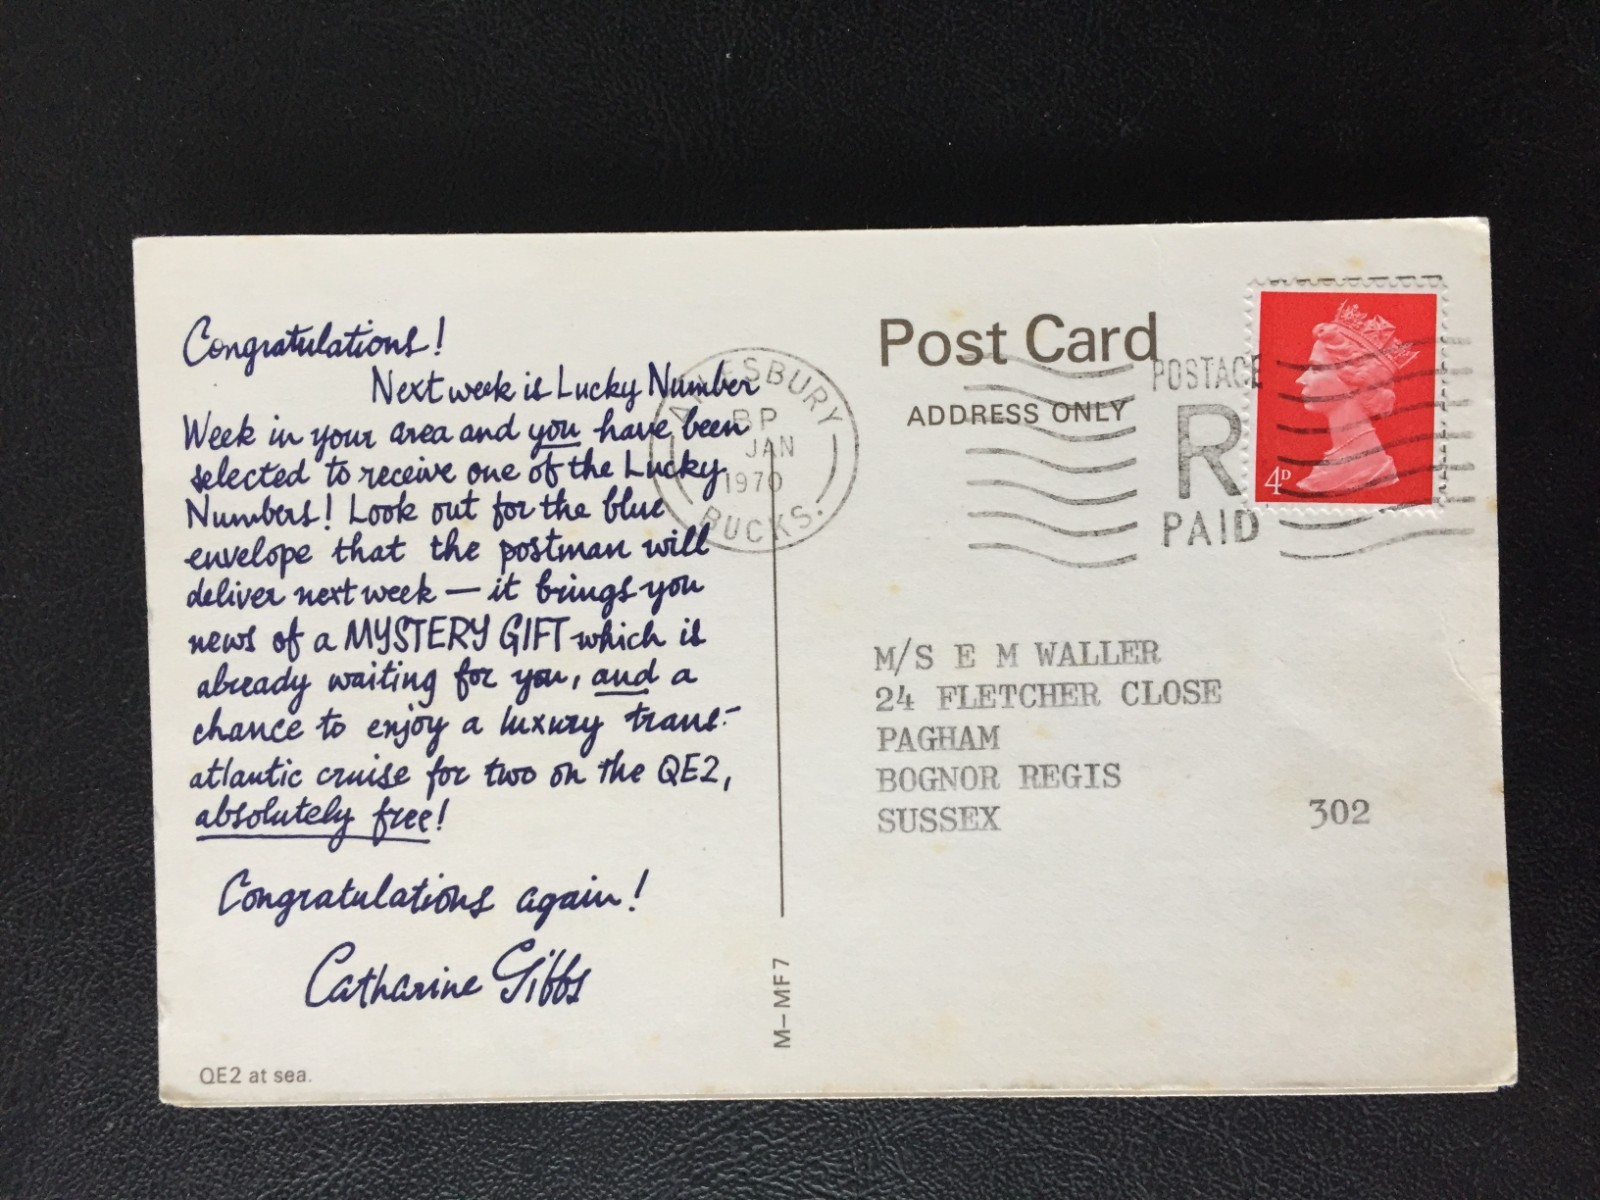 Congratulations!
Next week is Lucky Number
Week in your area and you have been
selected to receive one of the Lucky
Numbers! Look out for the blue
envelope that the postman will
deliver next week — it brings you
news of a MYSTERY GIFT which is
already waiting for you, and a
chance to enjoy a luxury trans-
atlantic cruise for two on the QE2,
absolutely free!
Congratulations again!
Catharine Gibbs
QE2 at sea.
M–MF7
AYLESBURY
BP
JAN
1970
BUCKS.
Post Card
ADDRESS ONLY
POSTAGE
R
PAID
4D
M/S E M WALLER
24 FLETCHER CLOSE
PAGHAM
BOGNOR REGIS
SUSSEX 302